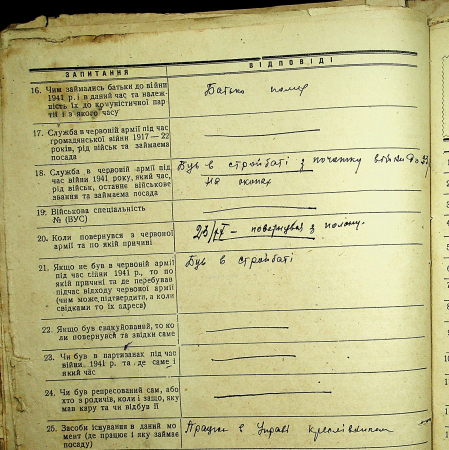 ЗАПИТАННЯ
ВІДПОВІДІ
16. Чим займались батьки до війни
1941 р. і в даний час та належ-
ність їх до комуністичної пар-
тії і з якого часу
Батько помер
17. Служба в червоній армії під час
громадянської війни 1917—22
років, рід військ та займаєма
посада
18. Служба в червоній армії під
час війни 1941 року, який час,
рід військ, останнє військове
звання та займаєма посада
Був в стройбаті з початку війни до
на окопах
19. Військова спеціальність
№ (ВУС)
20. Коли повернувся з червоної
армії та по якій причині
повернувся з полону.
21. Якщо не був в червоній армії
під час війни 1941 р., то по
якій причині та де перебував
підчас відходу червоної армії
(чим може підтвердити, а коли
свідками то їх адреса)
Був в стройбаті
22. Якщо був евакуйований, то ко-
ли повернувся та звідки саме
23. Чи був в партизанах під час
війни 1941 р. та де саме і
який час
24. Чи був репресований сам, або
хто з родичів, коли і за що, яку
мав кару та чи відбув її
25. Засоби існування в даний мо-
мент (де працює і яку займає
посаду)
Працює в Управі креслівником